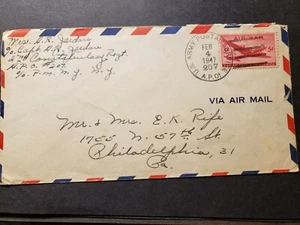 Mrs. G. R. Jardine
c/o Capt. G. R. Jardine
2nd Constabulary Regt.
A.P.O.
c/o P.M. N.Y. N.Y.
U.S. ARMY POSTAL SERVICE
FEB
4
1947
207
A.P.O.
AIR MAIL
5¢
VIA AIR MAIL
Mr. & Mrs. E. K. Rife
1755 N. 57th St
Philadelphia, 31
Pa.